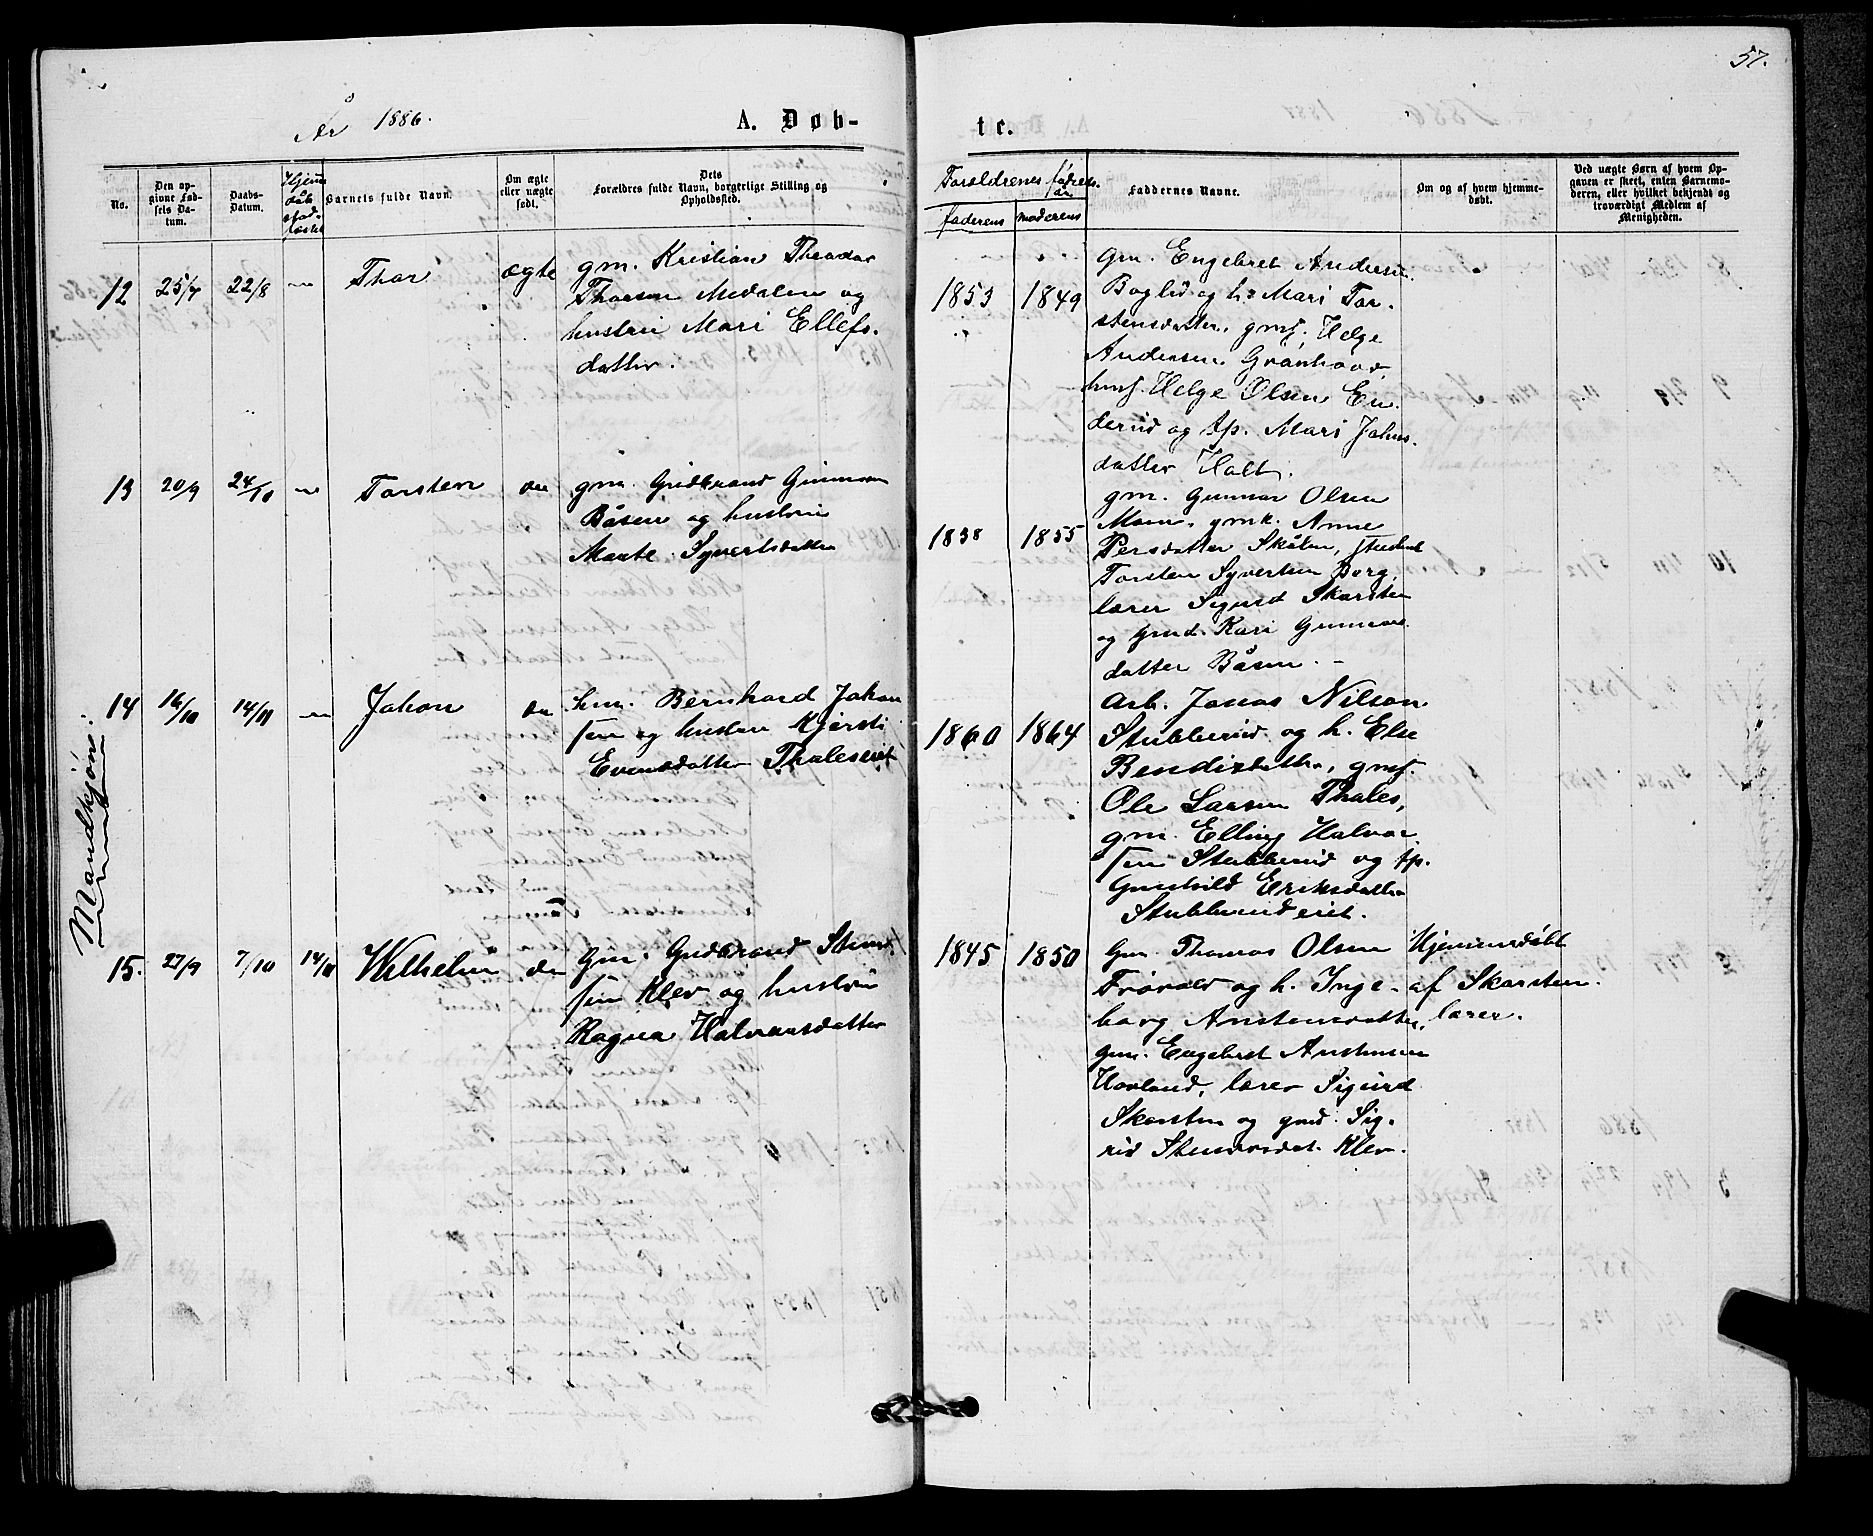 57.
År 1886.
A. Døb-
te.
No.
Den op-
givne Fød-
sels Da-
tum.
Daabs-
Datum.
Hjem
dåb
stad-
fæstet
Barnets fulde Navn.
Om ægte
eller uægte
født.
Dets
Forældres fulde Navn, borgerlige Stilling og
Opholdssted.
Forældrenes fødsels-
år
faderens
moderens
Faddernes Navne.
Om og af hvem hjemme-
døbt.
Ved uægte Børn af hvem Op-
gaven er skeet, enten Barnemo-
deren, eller hvilket bekjendt og
troværdigt Medlem af
Menigheden.
Mandkjøn:
12 25/7 22/8 — Thor ægte
gm. Kristian Theodor
Thorsen Medalen og
hustru Mari Ellefs-
datter.
1853 1849
Gm. Engebret Andersen
Boglid og h. Mari Tor-
stensdatter, gmf. Helge
Andersen Grønhovd,
husf. Helge Olsen En-
derud og tp. Mari Johns-
datter Holt.
13 20/9 24/10 — Torsten do
gm. Gudbrand Gunnarsen
Båsen og hustru
Marte Syvertsdatter
1838 1855
gm. Gunnar Olsen
Moen, gmk. Anne
Persdatter Skålen, student
Torsten Syvertsen Borg,
lærer Sigurd Skarsten
og gmd. Kari Gunnars-
datter Båsen. —
14 16/10 14/11 — Johan do
hm. Bernhard Johan
sen og hustru Kjersti
Evensdatter Tholeseiet
1860 1864
Arb. Jonas Nilsen
Stubberud og h. Else
Bendixdatter, gmf.
Ole Larsen Tholes,
gm. Elling Halvor
sen Stubberud og tp.
Gunhild Eriksdatter
Stubberudeiet.
15. 27/9 7/10 14/11 Wilhelm do
Gm. Gudbrand Stener
sen Klev og hustru
Ragna Halvorsdatter
1845 1850
Gm. Thomas Olsen
Frøvold og h. Inge-
borg Anstensdatter,
gm. Engebret Anstensen
Hovland, lærer Sigurd
Skarsten og gmd. Sig-
rid Stenersdat. Klev.
Hjemmedøbt
af Skarsten.
lærer.